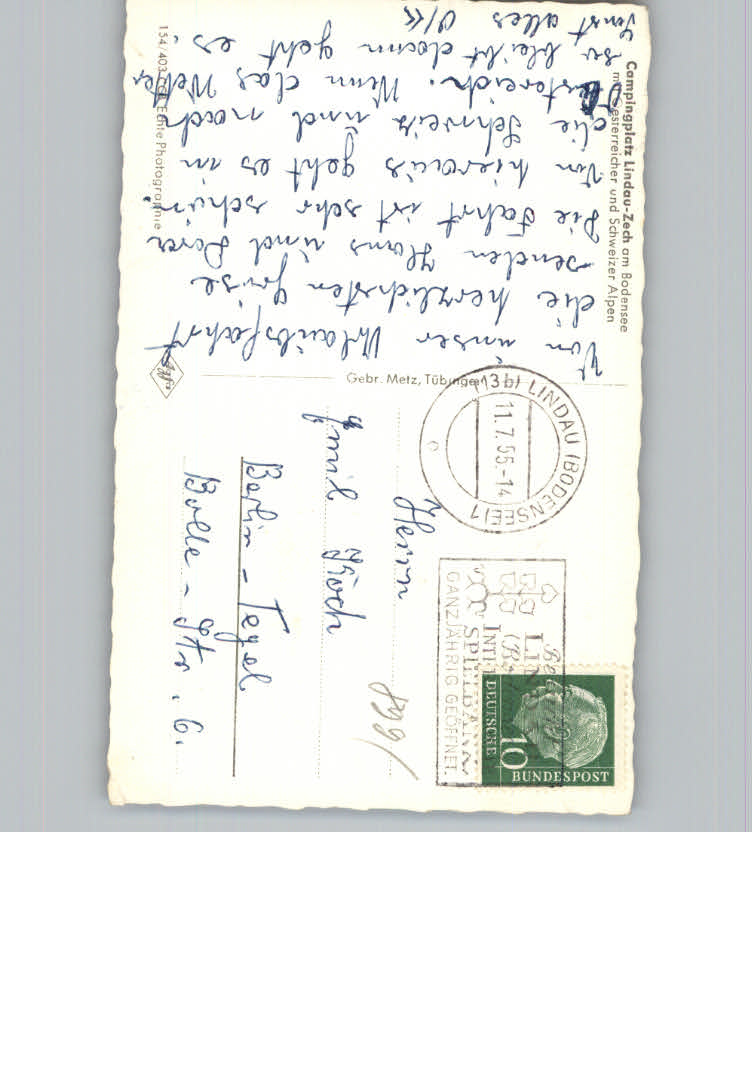 Campingplatz Lindau-Zech am Bodensee
mit Oesterreicher und Schweizer Alpen
Von unser Urlaubsfahrt
die herzlichsten Grüse
senden Hans und Dora
Die Fahrt ist sehr schön.
Von hieraus geht es in
die Schweiz und nach
Östereich. Wenn das Wetter
so bleibt dann geht es.
Sonst alles
154/403 CGL Echte Photographie
Gebr. Metz, Tübingen
Agfa
(13b) LINDAU (BODENSEE) 1
11.7.55.-14
SPIELBANK
GANZJÄHRIG GEÖFFNET
DEUTSCHE
BUNDESPOST
10
899/
Herrn
Emil Koch
Berlin - Tegel
Bolle - Str. 6.